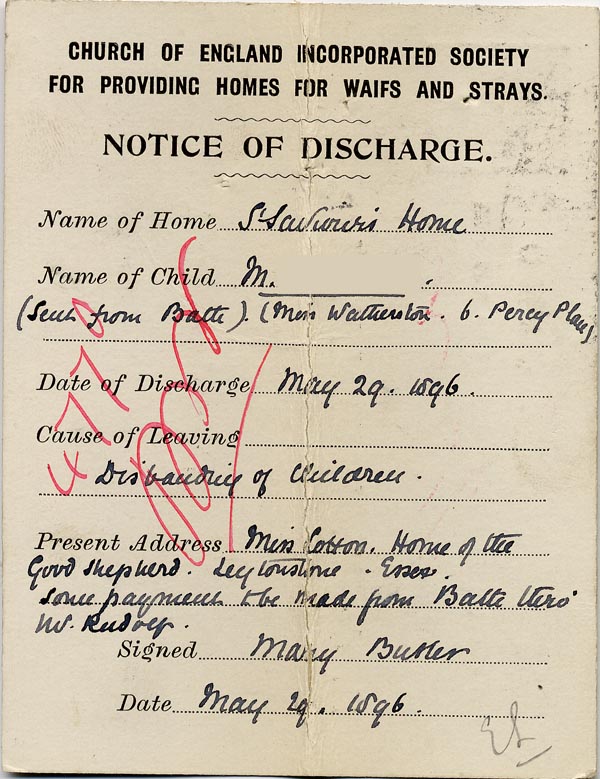 CHURCH OF ENGLAND INCORPORATED SOCIETY
FOR PROVIDING HOMES FOR WAIFS AND STRAYS.
NOTICE OF DISCHARGE.
Name of Home St Saviour's Home
Name of Child M.
(Sent from Bath). (Miss Watherston. 6. Percy Place)
Date of Discharge May 29. 1896.
Cause of Leaving
Disbanding of Children.
Present Address Miss Cotton. Home of the
Good Shepherd. Leytonstone. Essex.
some payment to be made from Bath thro'
Mr. Rudolf.
Signed Mary Butler
Date May 29. 1896.
4770